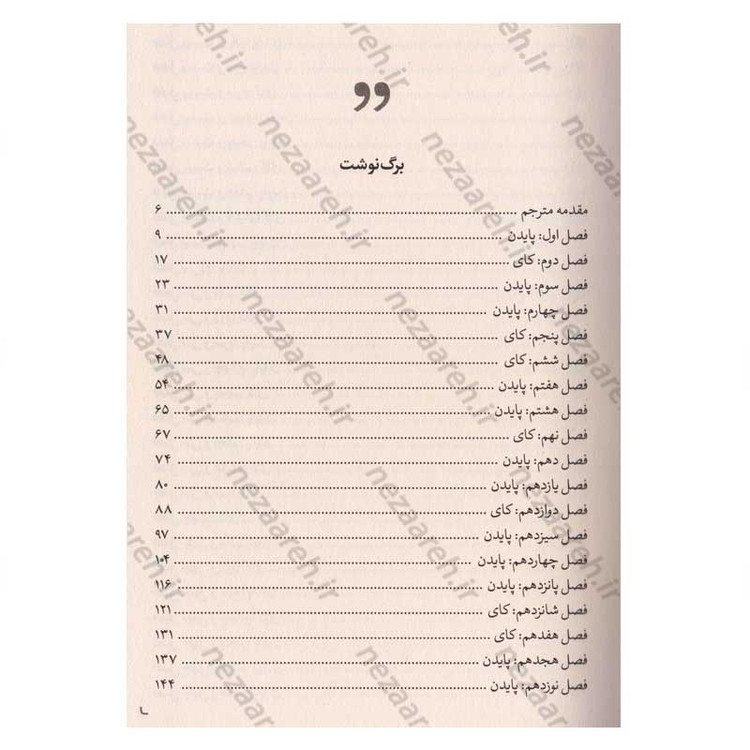 برگ‌نوشت
مقدمه مترجم ........ ۶
فصل اول: پایدن ........ ۹
فصل دوم: کای ........ ۱۷
فصل سوم: پایدن ........ ۲۳
فصل چهارم: پایدن ........ ۳۱
فصل پنجم: کای ........ ۳۷
فصل ششم: کای ........ ۴۸
فصل هفتم: پایدن ........ ۵۴
فصل هشتم: پایدن ........ ۶۵
فصل نهم: کای ........ ۶۷
فصل دهم: پایدن ........ ۷۴
فصل یازدهم: پایدن ........ ۸۰
فصل دوازدهم: کای ........ ۸۸
فصل سیزدهم: پایدن ........ ۹۷
فصل چهاردهم: پایدن ........ ۱۰۴
فصل پانزدهم: پایدن ........ ۱۱۶
فصل شانزدهم: کای ........ ۱۲۱
فصل هفدهم: کای ........ ۱۳۱
فصل هجدهم: پایدن ........ ۱۳۷
فصل نوزدهم: پایدن ........ ۱۴۴
nezaareh.ir